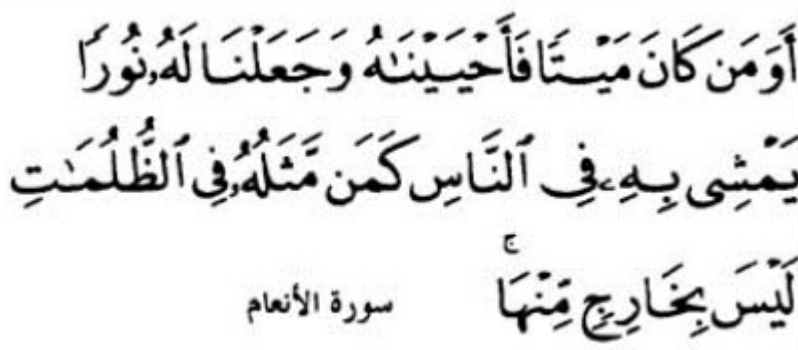 أَوَمَن كَانَ مَيْتًا فَأَحْيَيْنَٰهُ وَجَعَلْنَا لَهُۥ نُورًا
يَمْشِى بِهِۦ فِى ٱلنَّاسِ كَمَن مَّثَلُهُۥ فِى ٱلظُّلُمَٰتِ
لَيْسَ بِخَارِجٍ مِّنْهَا ۚ سورة الأنعام